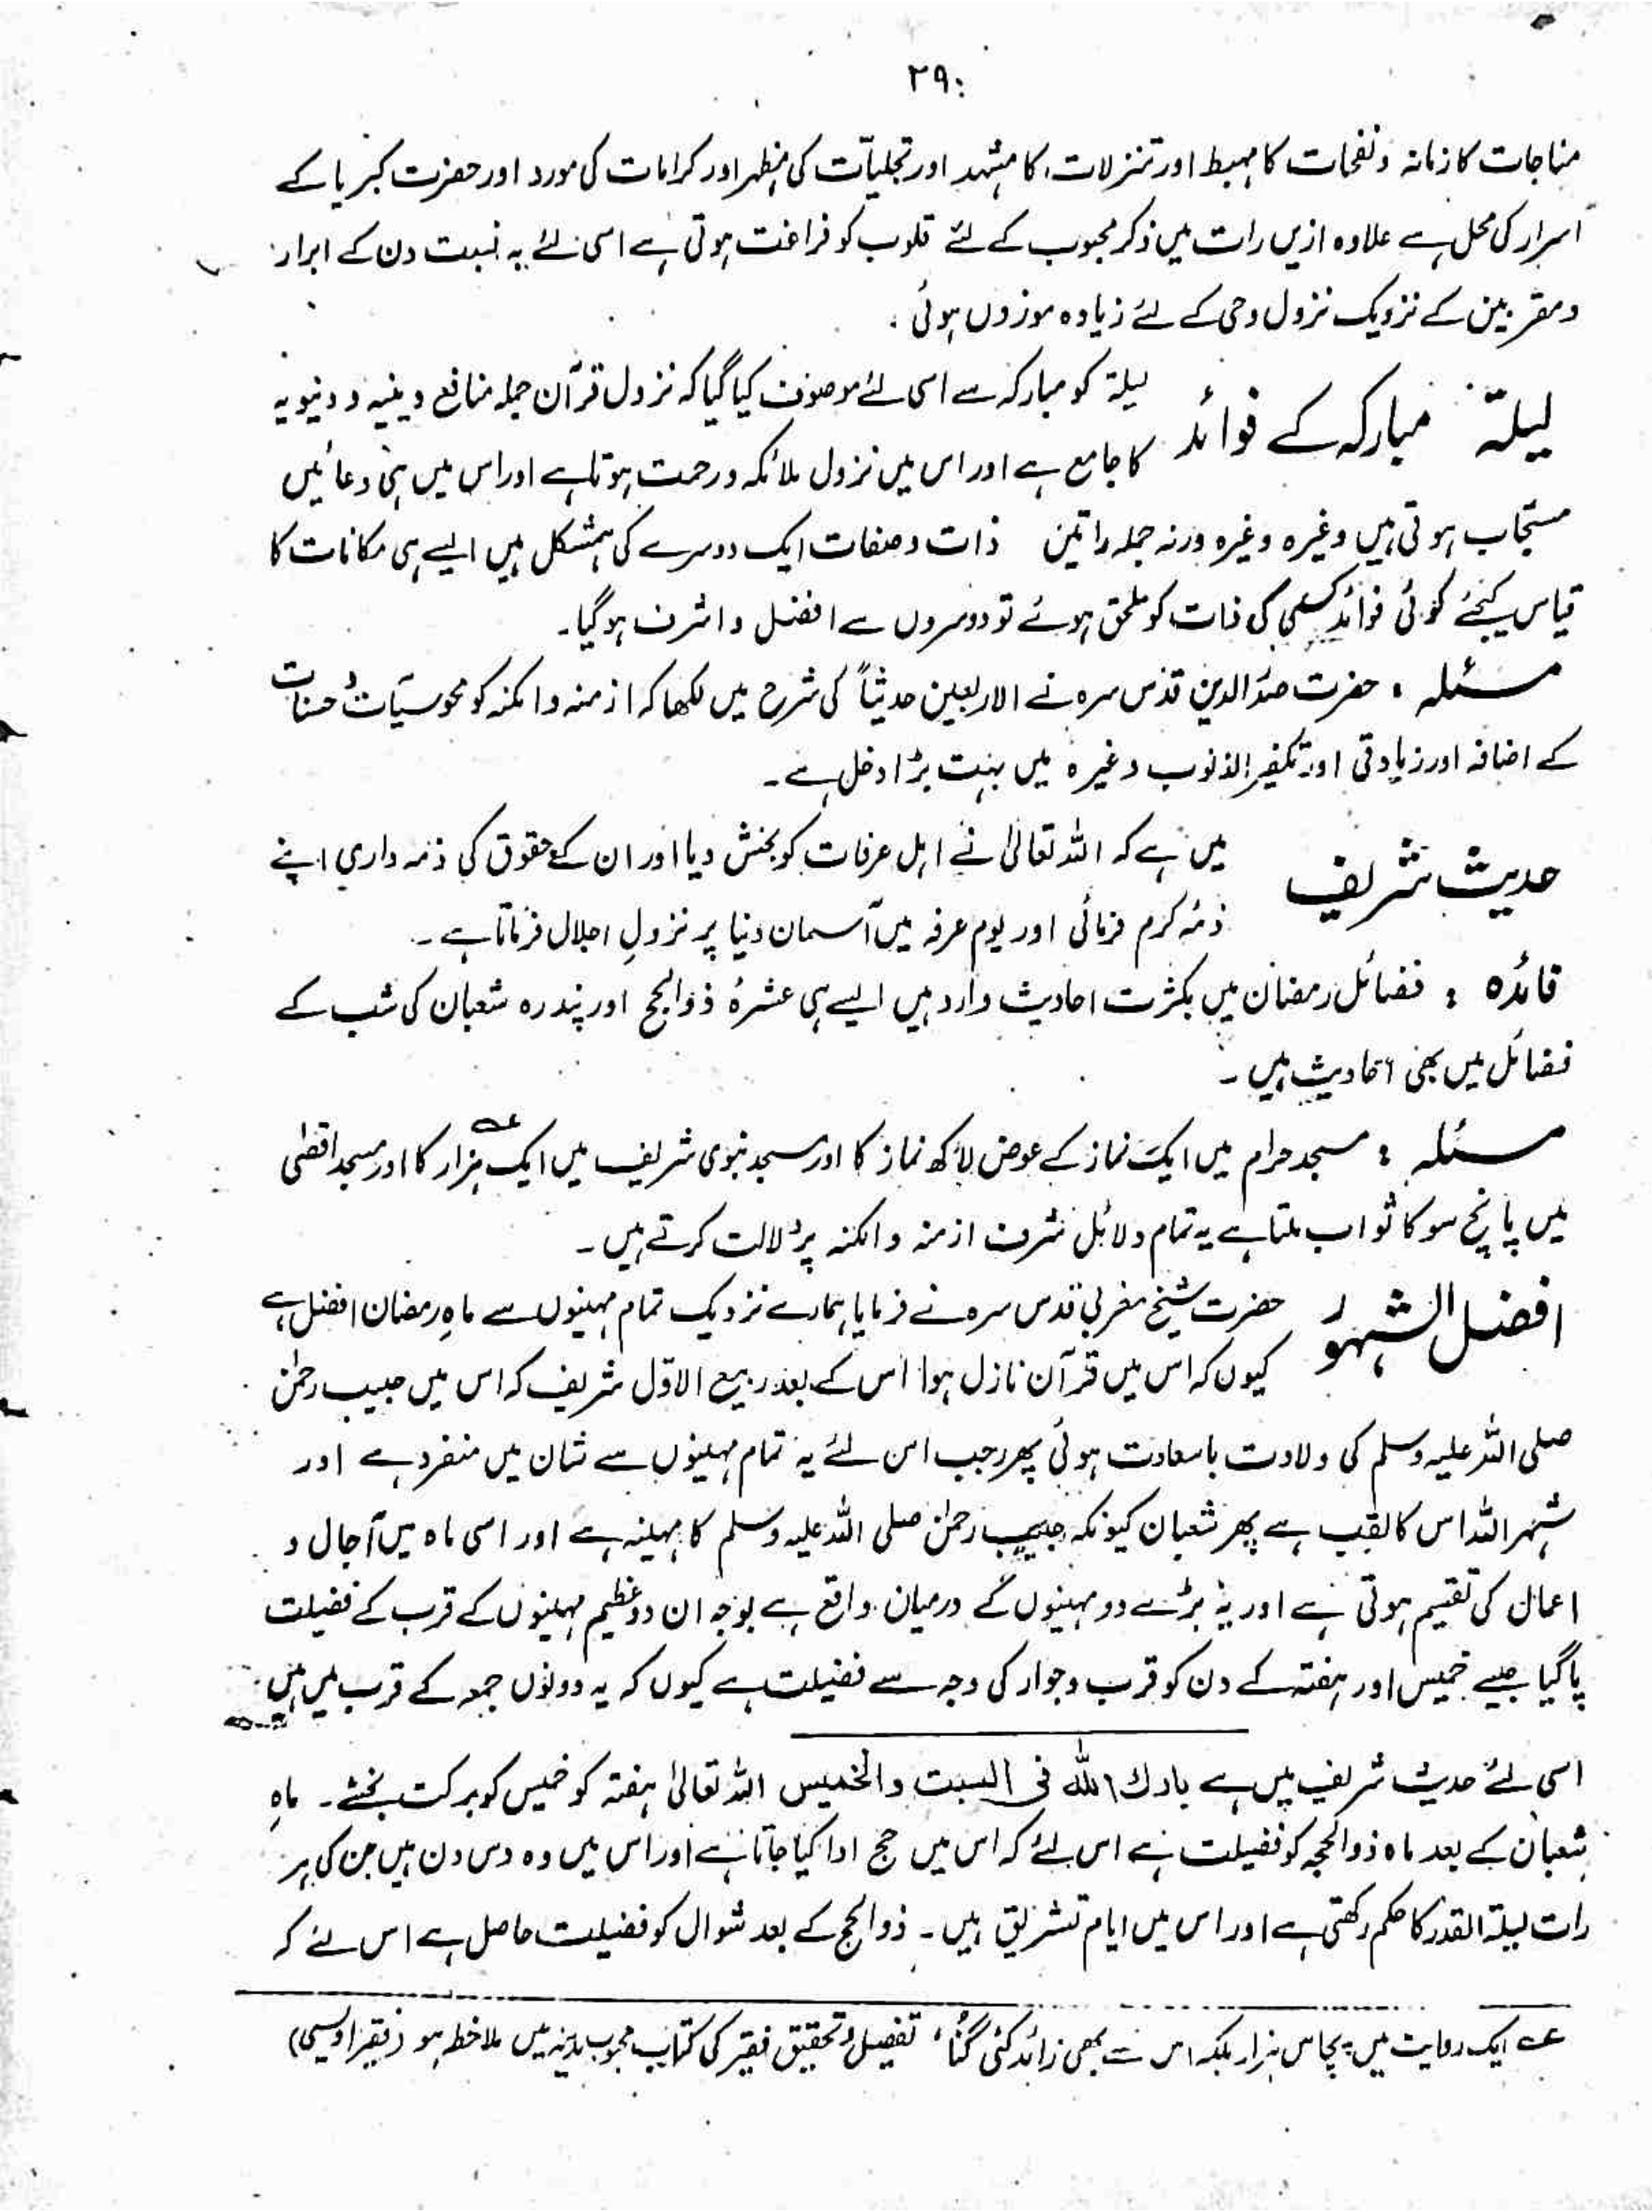 ۲۹:
مناجات کا زمانہ و نفحات کا مہبط اور تنزلات کا مشہد اور تجلیات کی مظہر اور کرامات کی مورد اور حضرت کبریا کے
اسرار کی محل ہے علاوہ ازیں رات میں ذکر محبوب کے لئے قلوب کو فراغت ہوتی ہے اسی لئے بہ نسبت دن کے ابرار
و مقربین کے نزدیک نزول وحی کے لئے زیادہ موزوں ہوئی .
لیلۃ مبارکہ کے فوائد
لیلۃ کو مبارکہ سے اسی لئے موصوف کیا گیا کہ نزول قرآن جملہ منافع دینیہ و دنیویہ
کا جامع ہے اور اس میں نزول ملائکہ و رحمت ہوتا ہے اور اس میں ہی دعائیں
مستجاب ہوتی ہیں وغیرہ وغیرہ ورنہ جملہ راتیں ذات و صفات ایک دوسرے کی ہمشکل ہیں ایسے ہی مکانات کا
قیاس کیجئے کوئی فوائد کسی کی ذات کو ملحق ہوئے تو دوسروں سے افضل و اشرف ہوگیا۔
مسئلہ : حضرت صدر الدین قدس سرہ نے الاربعین حدیثاً کی شرح میں لکھا کہ ازمنہ و امکنہ کو محو سیّات و حسنات
کے اضافہ اور زیادتی اور تکفیر الذنوب وغیرہ میں بہت بڑا دخل ہے۔
حدیث شریف
میں ہے کہ اللہ تعالیٰ نے اہل عرفات کو بخش دیا اور ان کے حقوق کی ذمہ داری اپنے
ذمۂ کرم فرمائی اور یوم عرفہ میں آسمان دنیا پر نزولِ اجلال فرماتا ہے۔
فائدہ : فضائل رمضان میں بکثرت احادیث وارد ہیں ایسے ہی عشرۂ ذوالحج اور پندرہ شعبان کی شب کے
فضائل میں بھی احادیث ہیں۔
مسئلہ : مسجد حرام میں ایک نماز کے عوض لاکھ نماز کا اور مسجد نبوی شریف میں ایک ہزار کا عہ اور مسجد اقصٰی
میں پانچ سو کا ثواب ملتا ہے یہ تمام دلائل شرف ازمنہ و امکنہ پر دلالت کرتے ہیں۔
افضل الشہور
حضرت شیخ مغربی قدس سرہ نے فرمایا ہمارے نزدیک تمام مہینوں سے ماہِ رمضان افضل ہے
کیوں کہ اس میں قرآن نازل ہوا اس کے بعد ربیع الاوّل شریف کہ اس میں حبیب رحمٰن
صلی اللہ علیہ وسلم کی ولادت باسعادت ہوئی پھر رجب اس لئے یہ تمام مہینوں سے شان میں منفرد ہے اور
شہر اللہ اس کا لقب ہے پھر شعبان کیونکہ حبیب رحمٰن صلی اللہ علیہ وسلم کا مہینہ ہے اور اسی ماہ میں آجال و
اعمال کی تقسیم ہوتی ہے اور یہ بڑے دو مہینوں کے درمیان واقع ہے بوجہ ان دو عظیم مہینوں کے قرب کے فضیلت
پا گیا جیسے خمیس اور ہفتہ کے دن کو قرب وجوار کی وجہ سے فضیلت ہے کیوں کہ یہ دونوں جمعہ کے قرب میں ہیں
اسی لئے حدیث شریف میں ہے بارك الله فى السبت والخميس اللہ تعالیٰ ہفتہ کو خمیس کو برکت بخشے۔ ماہِ
شعبان کے بعد ماہ ذوالحجہ کو فضیلت ہے اس لئے کہ اس میں حج ادا کیا جاتا ہے اور اس میں وہ دس دن ہیں جن کی ہر
رات لیلۃ القدر کا حکم رکھتی ہے اور اس میں ایام تشریق ہیں۔ ذوالحج کے بعد شوال کو فضیلت حاصل ہے اس لئے کہ
عہ ایک روایت میں پچاس ہزار بلکہ اس سے بھی زائد کئی گُنا، تفصیل و تحقیق فقیر کی کتاب محبوب مدینہ میں ملاحظہ ہو (فقیر اویسی)